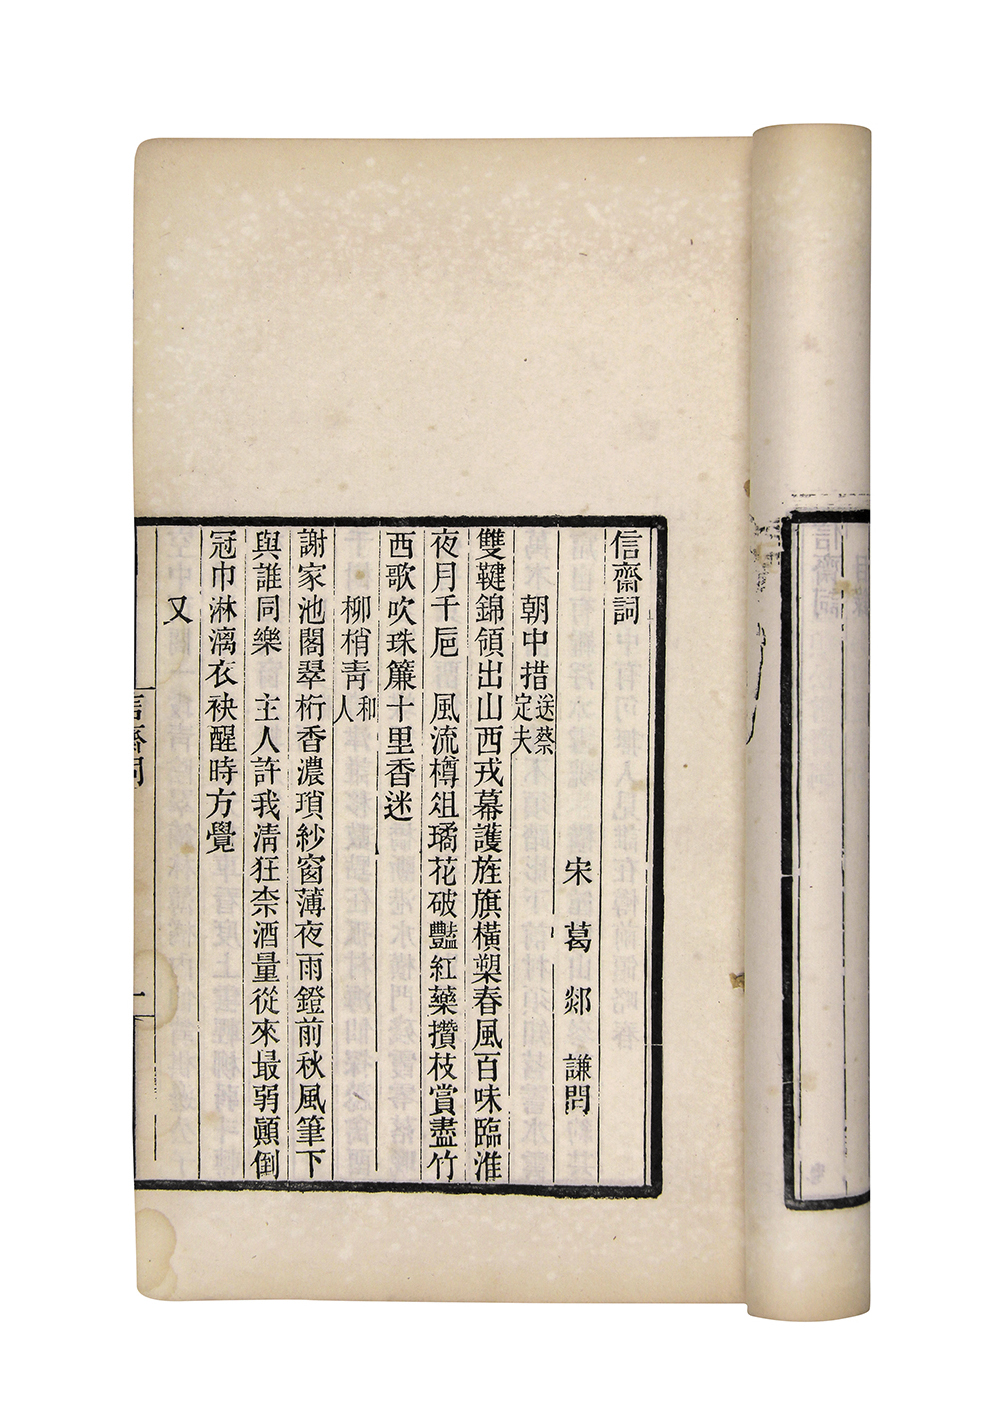 信齋詞
宋 葛 郯 謙問
朝中措送蔡定夫
雙鞬錦領出山西戎幕護旌旗橫槊春風百味臨淮
夜月千巵 風流樽俎璚花破豔紅藥攢枝賞盡竹
西歌吹珠簾十里香迷
柳梢青和人
謝家池閣翠桁香濃瑣紗窗薄夜雨鐙前秋風筆下
與誰同樂 主人許我清狂柰酒量從來最弱顛倒
冠巾淋漓衣袂醒時方覺
又
信齋詞
一